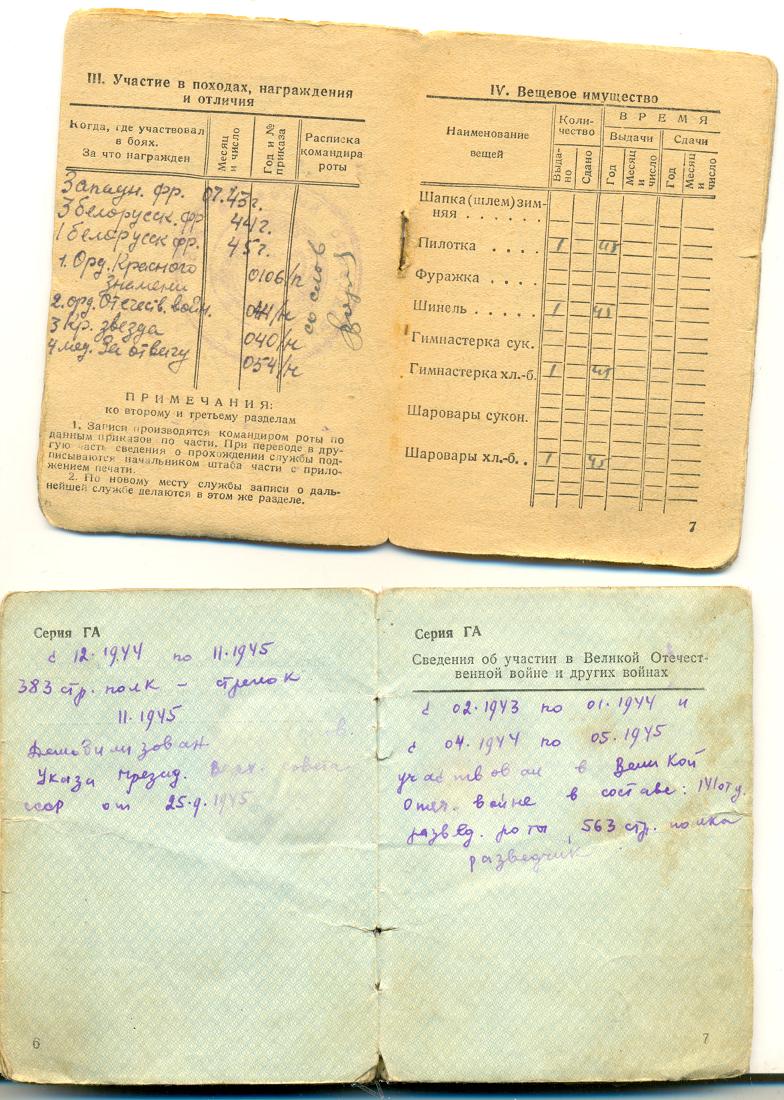 III. Участие в походах, награждения
и отличия
Когда, где участвовал
в боях.
За что награжден
Месяц
и число
Год и №
приказа
Расписка
командира
роты
Западн. фр. 07.43г.
3 белорусск. фр 44г.
1 белорусск фр. 45г.
1. Орд. Красного
знамени 0106/н
2. орд. Отечеств. войн. 044/н
3 кр. звезда 040/н
4 мед. За отвагу 054/н
со слов
ПРИМЕЧАНИЯ:
ко второму и третьему разделам
1. Записи производятся командиром роты по
данным приказов по части. При переводе в дру-
гую часть сведения о прохождении службы под-
писываются начальником штаба части с прило-
жением печати.
2. По новому месту службы записи о даль-
нейшей службе делаются в этом же разделе.
IV. Вещевое имущество
Наименование
вещей
Коли-
чество
ВРЕМЯ
Выдачи
Сдачи
Выда-
но
Сдано
Год
Месяц
и
число
Год
Месяц
и
число
Шапка (шлем) зим-
няя . . . . . .
Пилотка . . . . 1 45
Фуражка . . . .
Шинель . . . . . 1 45
Гимнастерка сук.
Гимнастерка хл.-б. 1 45
Шаровары сукон.
Шаровары хл.-б. . 1 45
7
Серия ГА
с 12.1944 по 11.1945
383 стр. полк – стрелок
11.1945
Демобилизован
Указа Презид. Верх. совета
ссср от 25.9.1945
6
Серия ГА
Сведения об участии в Великой Отечест-
венной войне и других войнах
с 02.1943 по 01.1944 и
с 04.1944 по 05.1945
участвовал в Великой
Отеч. войне в составе: 141 отд.
развед. роты, 563 стр. полка
разведчик
7